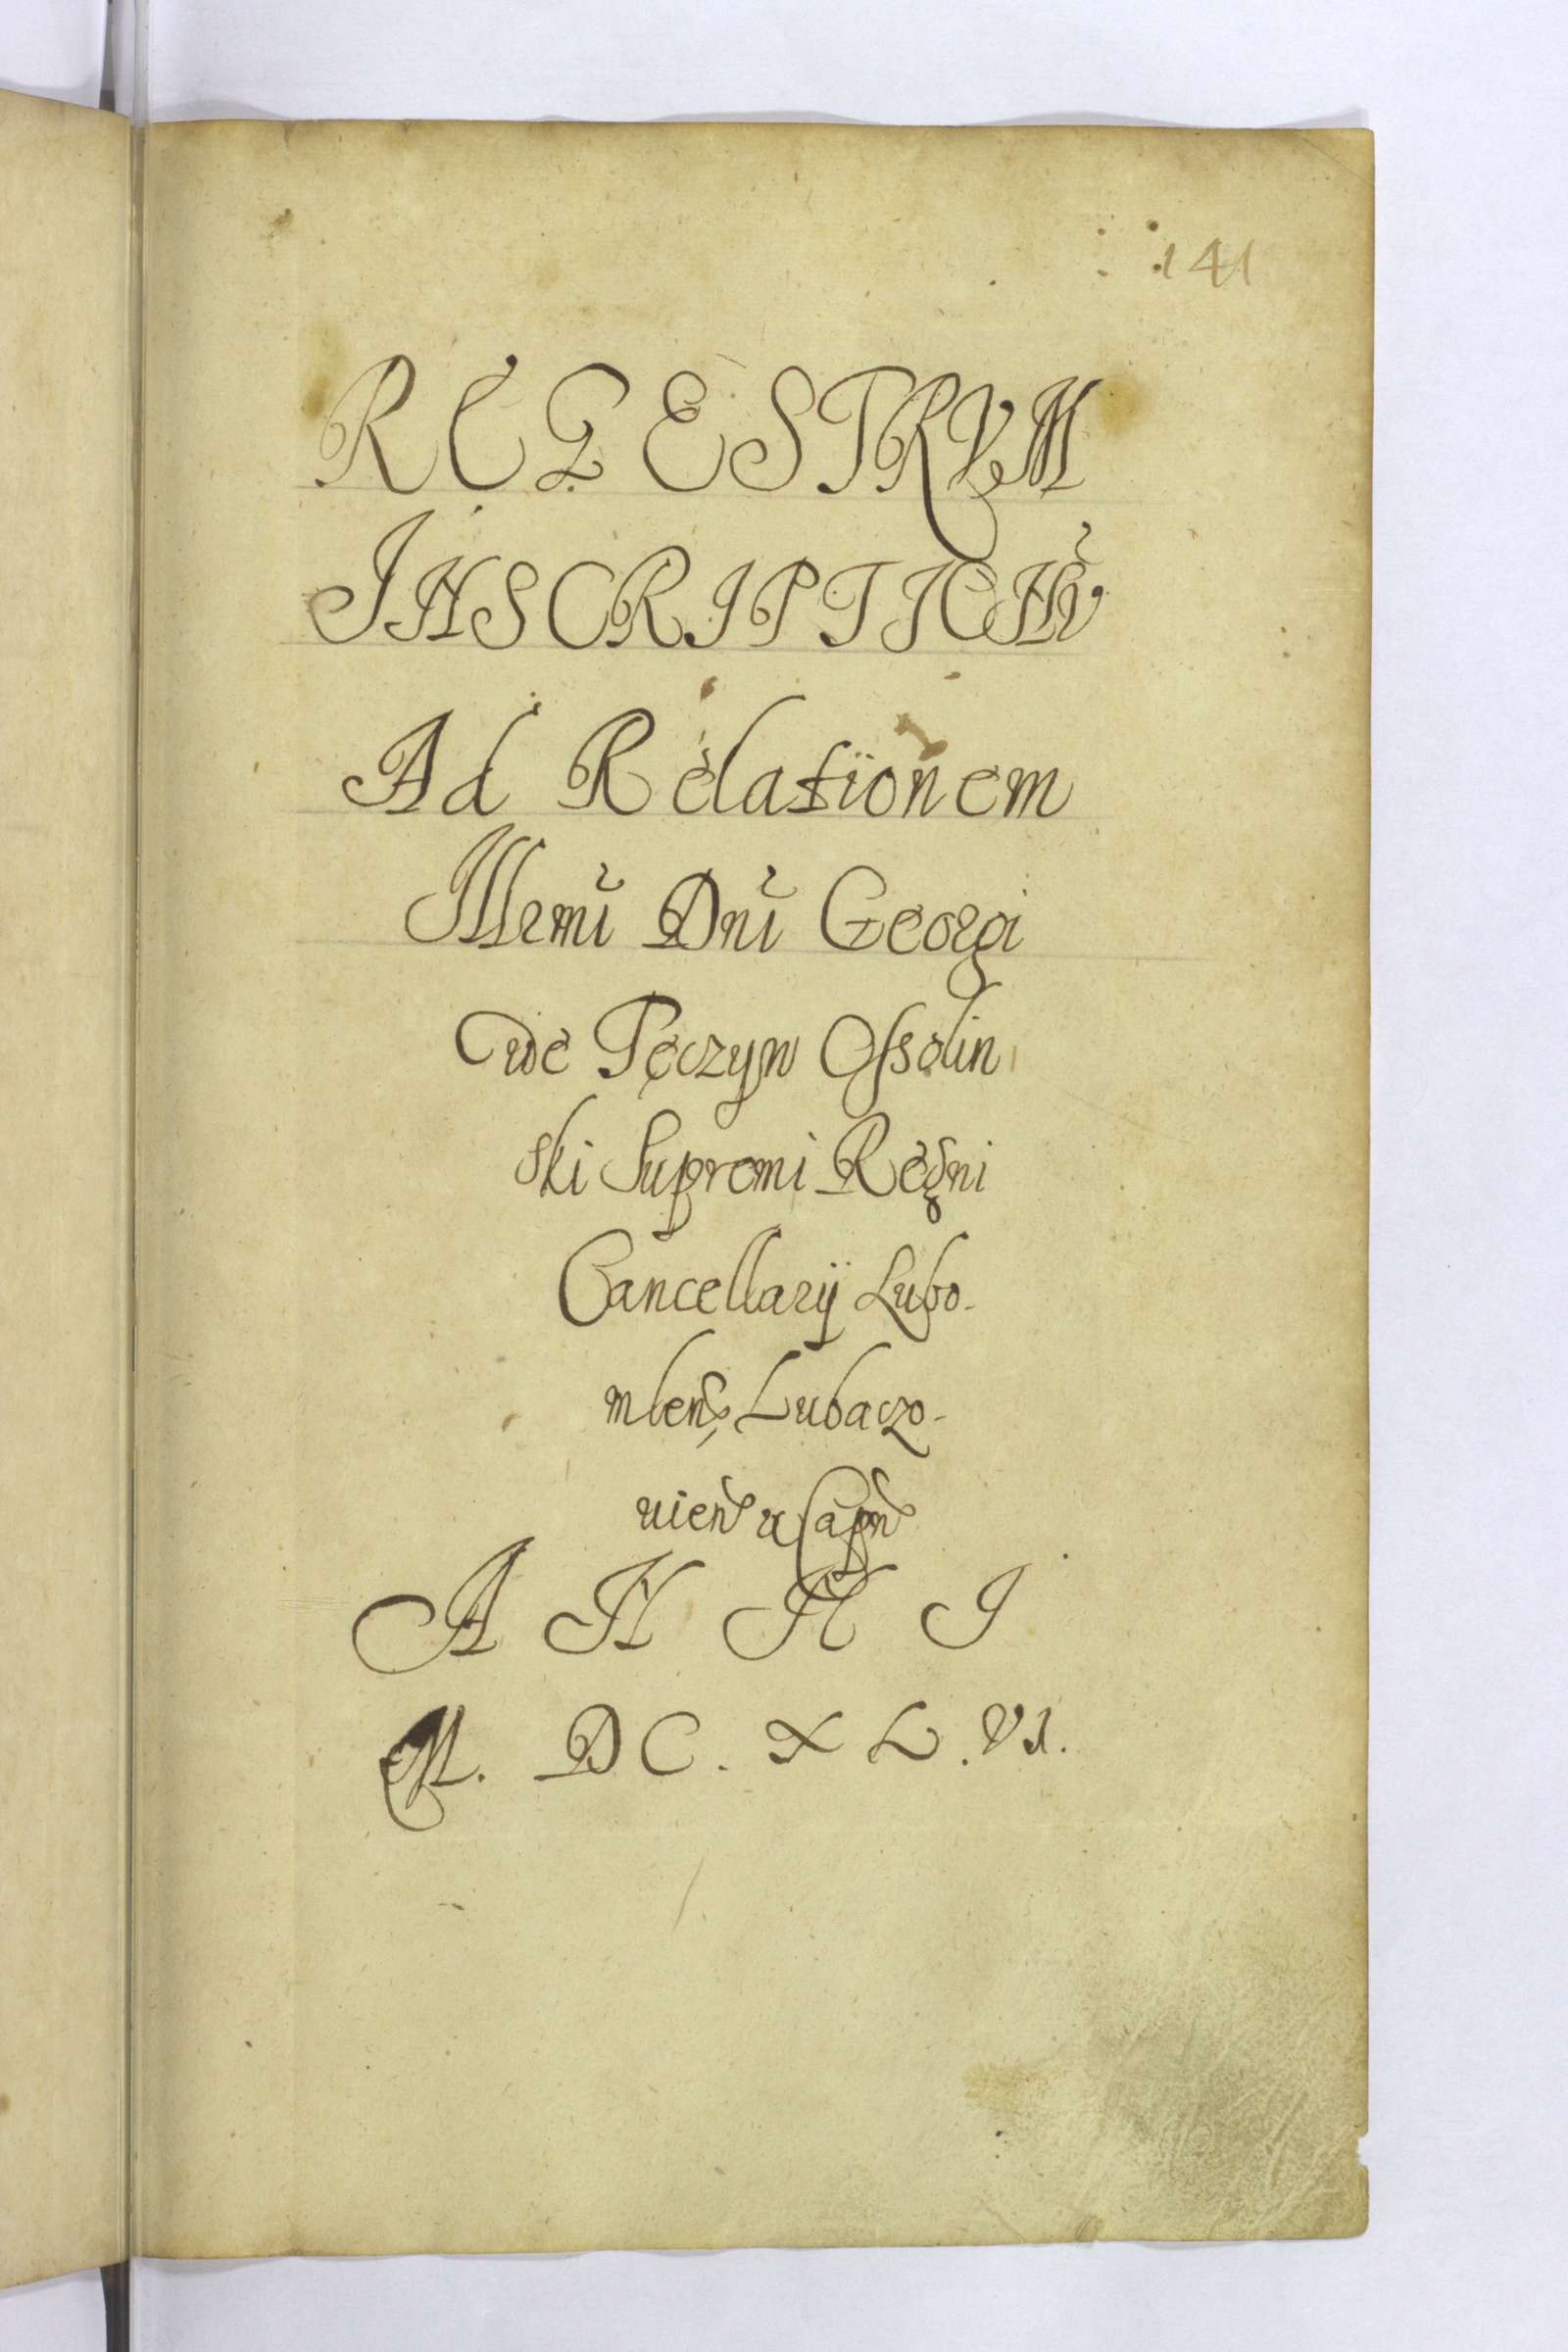 141
REGESTRVM
INSCRIPTIONV̄
Ad Relationem
Illrmi Dni Georgi
de Tęczyn Ossolin
ski Supremi Regni
Cancellarij Lubo-
mlens, Lubaczo-
uien Capn
ANNI
M. DC. XL. VI.